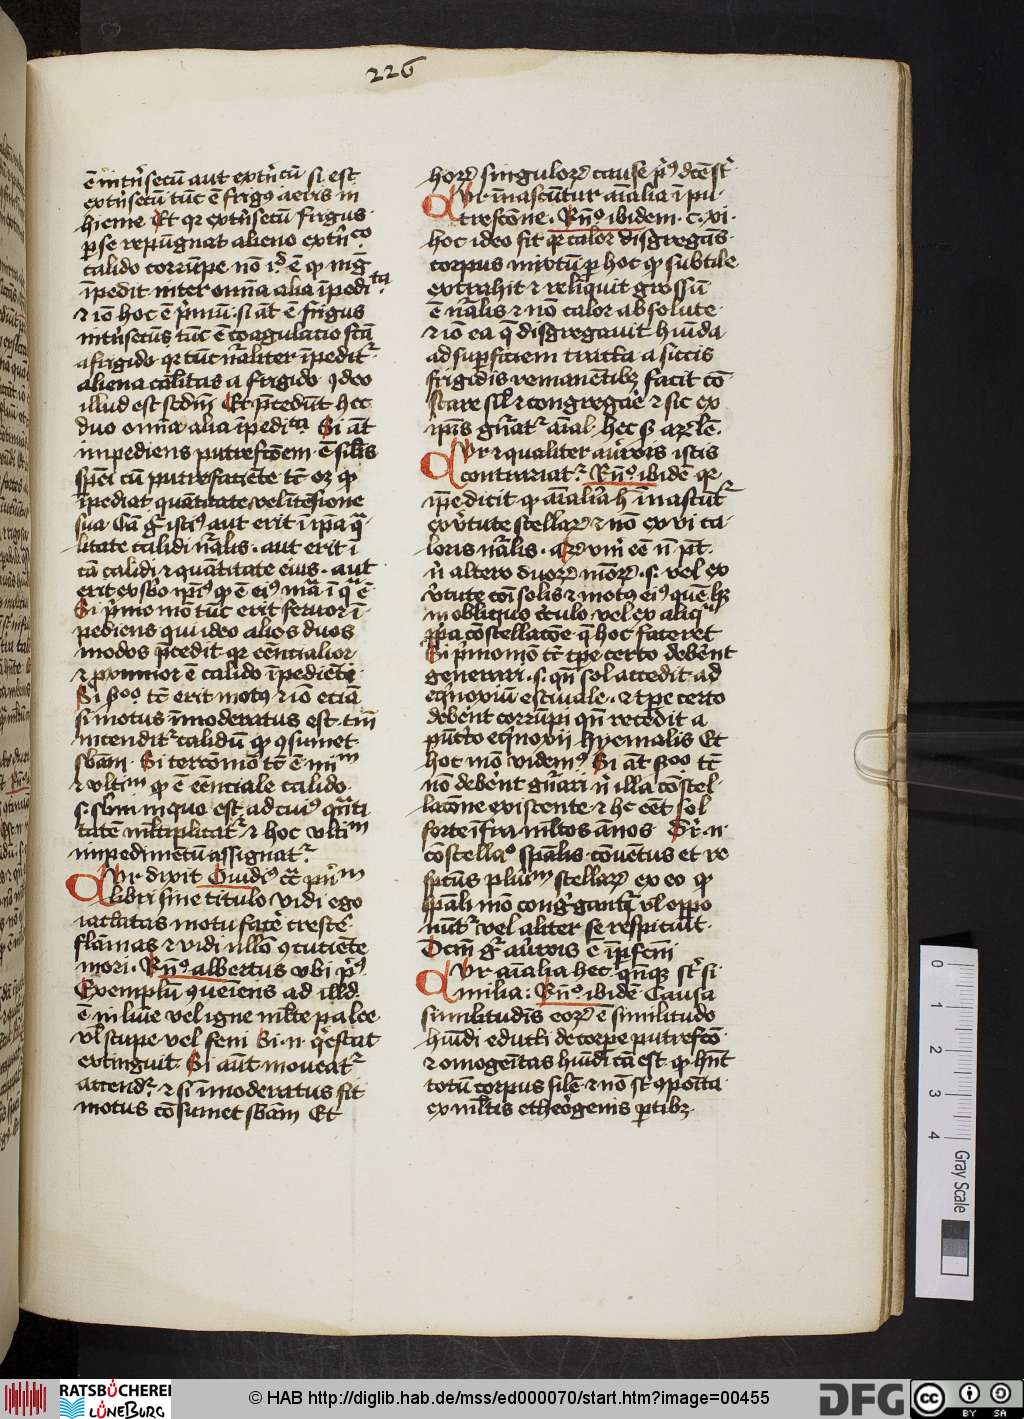 226
ē int̄nsecū aut ext̄nsecū si est
extr̄nsecū tūc ē frigꝰ aeris in
hieme Et qꝛ extr̄nsecū frigus
ꝑ se repūgnat alieno extr̄nco
calido corrūpe nō
īpedit inter omīa alia īpedita
⁊ iō hoc ē pͥmū. si āt ē frigus
intr̄secus tūc ē coagulacio
a frigido qꝛ tūc nr̄aliter īpedit᷑
aliena caliditas a frigido ideo
illud est scdm̄ Et p̄cedūt hec
duo omīa alia īpedita Si āt
impediens putrefcōem ē silis
spēi cū putrefaciente tc̄ oꝫ ꝙ
īpediat quātitate vel itēsione
sua Cā gͦ istiꝰ aut erit ī ip̄a qͣ
litate calidi nr̄alis . aut erit ī
cā calidi ⁊ quātitate eius . aut
erit
Si pͥmo mō tūc erit feruor ī
pediens qui ideo alios duos
modos p̄cedit qꝛ eēncialior
⁊ ꝓximior ē calido īpediēte
Si scdo tc̄ erit motꝰ ⁊ iō eciā
si motus īmoderatus est tm̄
intendit᷑ calidū ꝙ ꝯsumet
sbām . Si tercō mō tc̄ ē
⁊ vltīm ꝙ ē eēnciale calido
s. sbm̄ in quo est ad cuiꝰ qn̄ti
tatē ml̄tiplicat᷑ ⁊ hoc vltīm
impedimētū assignat᷑
Cur dixit Ouidiꝰ
libri sine titulo vidi ego
iactatas motu face crescē
flāmas ⁊ vidi nullo ꝯcutiēte
mori . Rn̄ꝰ albertus vbi pͥꝰ
Exemplū ꝯueiens ad illd
ē in luīe vel igne incēte palee
vl̄ stupe vel feni Si n̄ qͥescat
extinguit Si aūt moueat᷑
accend᷑ ⁊ si īmoderatus sit
motus cōsumet sbām Et
horꝝ singulorꝝ cause pͥꝰ dc̄e st̄
Cur īnascūtur aīalia ī pu
trefcōne . Rn̄ꝰ ibidem . c. xi .
hoc ideo fit qꝛ calor disgregās
corpus mixtū ꝑ hoc ꝙ subtile
extrahit ⁊ reliquit grossū
ē nr̄alis ⁊ nō calor absolute
⁊ iō ea q̄ disgregauit hūida
ad suꝑficiem tracta a siccis
frigidis remanētibꝫ facit cō
stare sil̄ ⁊ congregare ⁊ sic ex
ip̄is gn̄at᷑ aīal . hec ẜ arl̄e .
Cur ⁊ qualiter auctrois istis
contrariat᷑ . Rn̄ꝰ ibidē qꝛ
ip̄e dicit ꝙ aīalia h̄ īnascūt᷑
ex v̄tute stellarꝝ ⁊ nō ex vi ca
loris nr̄alis . qd̄ vm̄ eē n̄ pt̄ .
ni altero duorꝝ mōrꝝ . s. vel ex
v̄tute cōi solis ⁊ motꝰ eiꝰ quē hꝫ
in obliquo circulo . vel ex aliqua
ꝓpͥa cōstellacōe q̄ hoc faceret
Si pͥmo mō tc̄ tp̄e certo debēnt
generari . s. qn̄ sol accedit ad
eqͥnoxiū estiuale . ⁊ tp̄e certo
debēnt corrūpi qn̄ recedit a
pūcto eqͥnoxii hyemalis Et
hoc nō videmꝰ Si āt scdo tc̄
nō debēnt gn̄ari nͥ illa cōstel
lacōne existente ⁊ hc̄ eēt sol
forte īfra ml̄tos ānos Dr̄ n̄
cōstellaͦ spālis cōuētus et re
spectus plurīm stellarꝝ ex eo ꝙ
spāli mō congͥgantur vl̄ oppo
nūt᷑ vel aliter se respiciūt
Dcm̄ gͦ aucͦrois ē īperfcm̄
Cur aīalia hec qn̄qꝫ st̄ si
milia : Rn̄ꝰ . ibidē Causa
similitudīs eorꝝ ē similitudo
hūidi educti de corpe putrefcō
⁊ omogeītas hūidi cā est ꝙ hn̄t
totū corpus sile ⁊ nō st̄ ꝯpoīta
ex ml̄tis etheogenis ꝑtibꝫ
0
1
2
3
4
Gray Scale
RATSBÜCHEREI
LÜNEBURG
© HAB http://diglib.hab.de/mss/ed000070/start.htm?image=00455
DFG
cc
BY SA